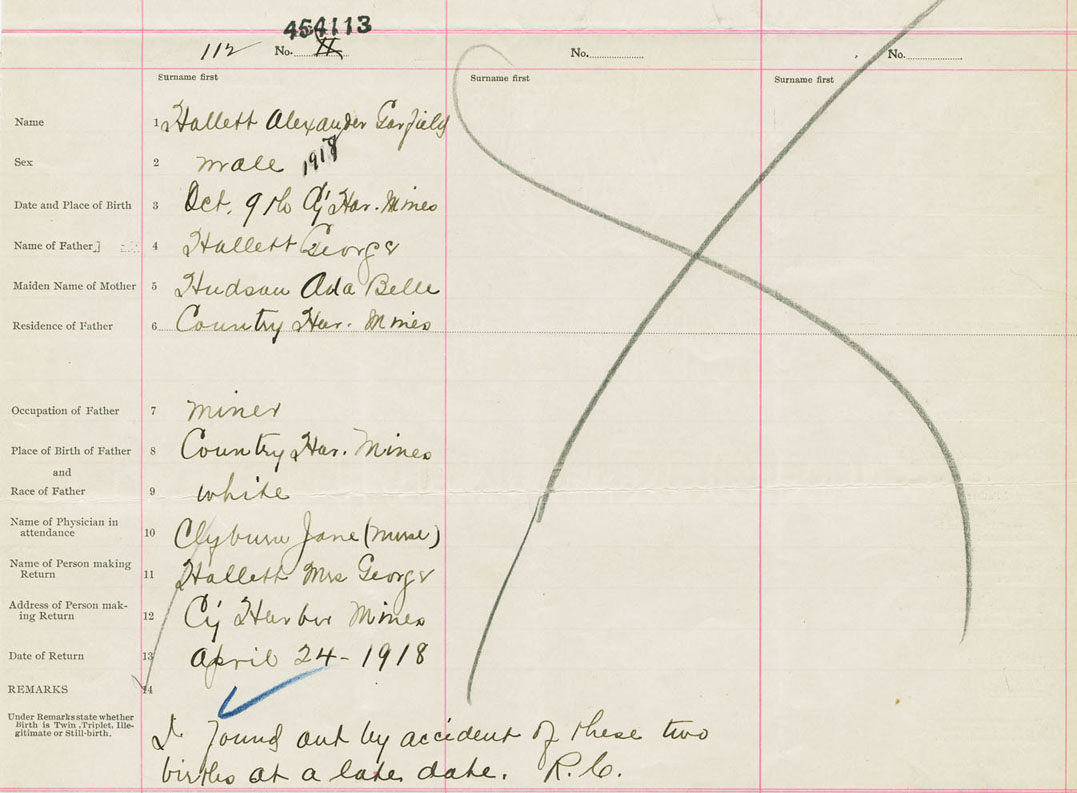 454113
112 No. No. No.
Surname first Surname first Surname first
Name 1 Hallett Alexander Garfield
Sex 2 male 1918
Date and Place of Birth 3 Oct. 9th Cy Har. Mines
Name of Father 4 Hallett George
Maiden Name of Mother 5 Hudson Ada Belle
Residence of Father 6 Country Har. Mines
Occupation of Father 7 miner
Place of Birth of Father 8 Country Har. Mines
and
Race of Father 9 white
Name of Physician in
attendance 10 Clyburn Jane (nurse)
Name of Person making
Return 11 Hallett Mrs George
Address of Person mak-
ing Return 12 Cy Harbor Mines
Date of Return 13 April 24-1918
REMARKS 14
Under Remarks state whether
Birth is Twin, Triplet, Ille-
gitimate or Still-birth.
I found out by accident of these two
births at a late date. R.C.